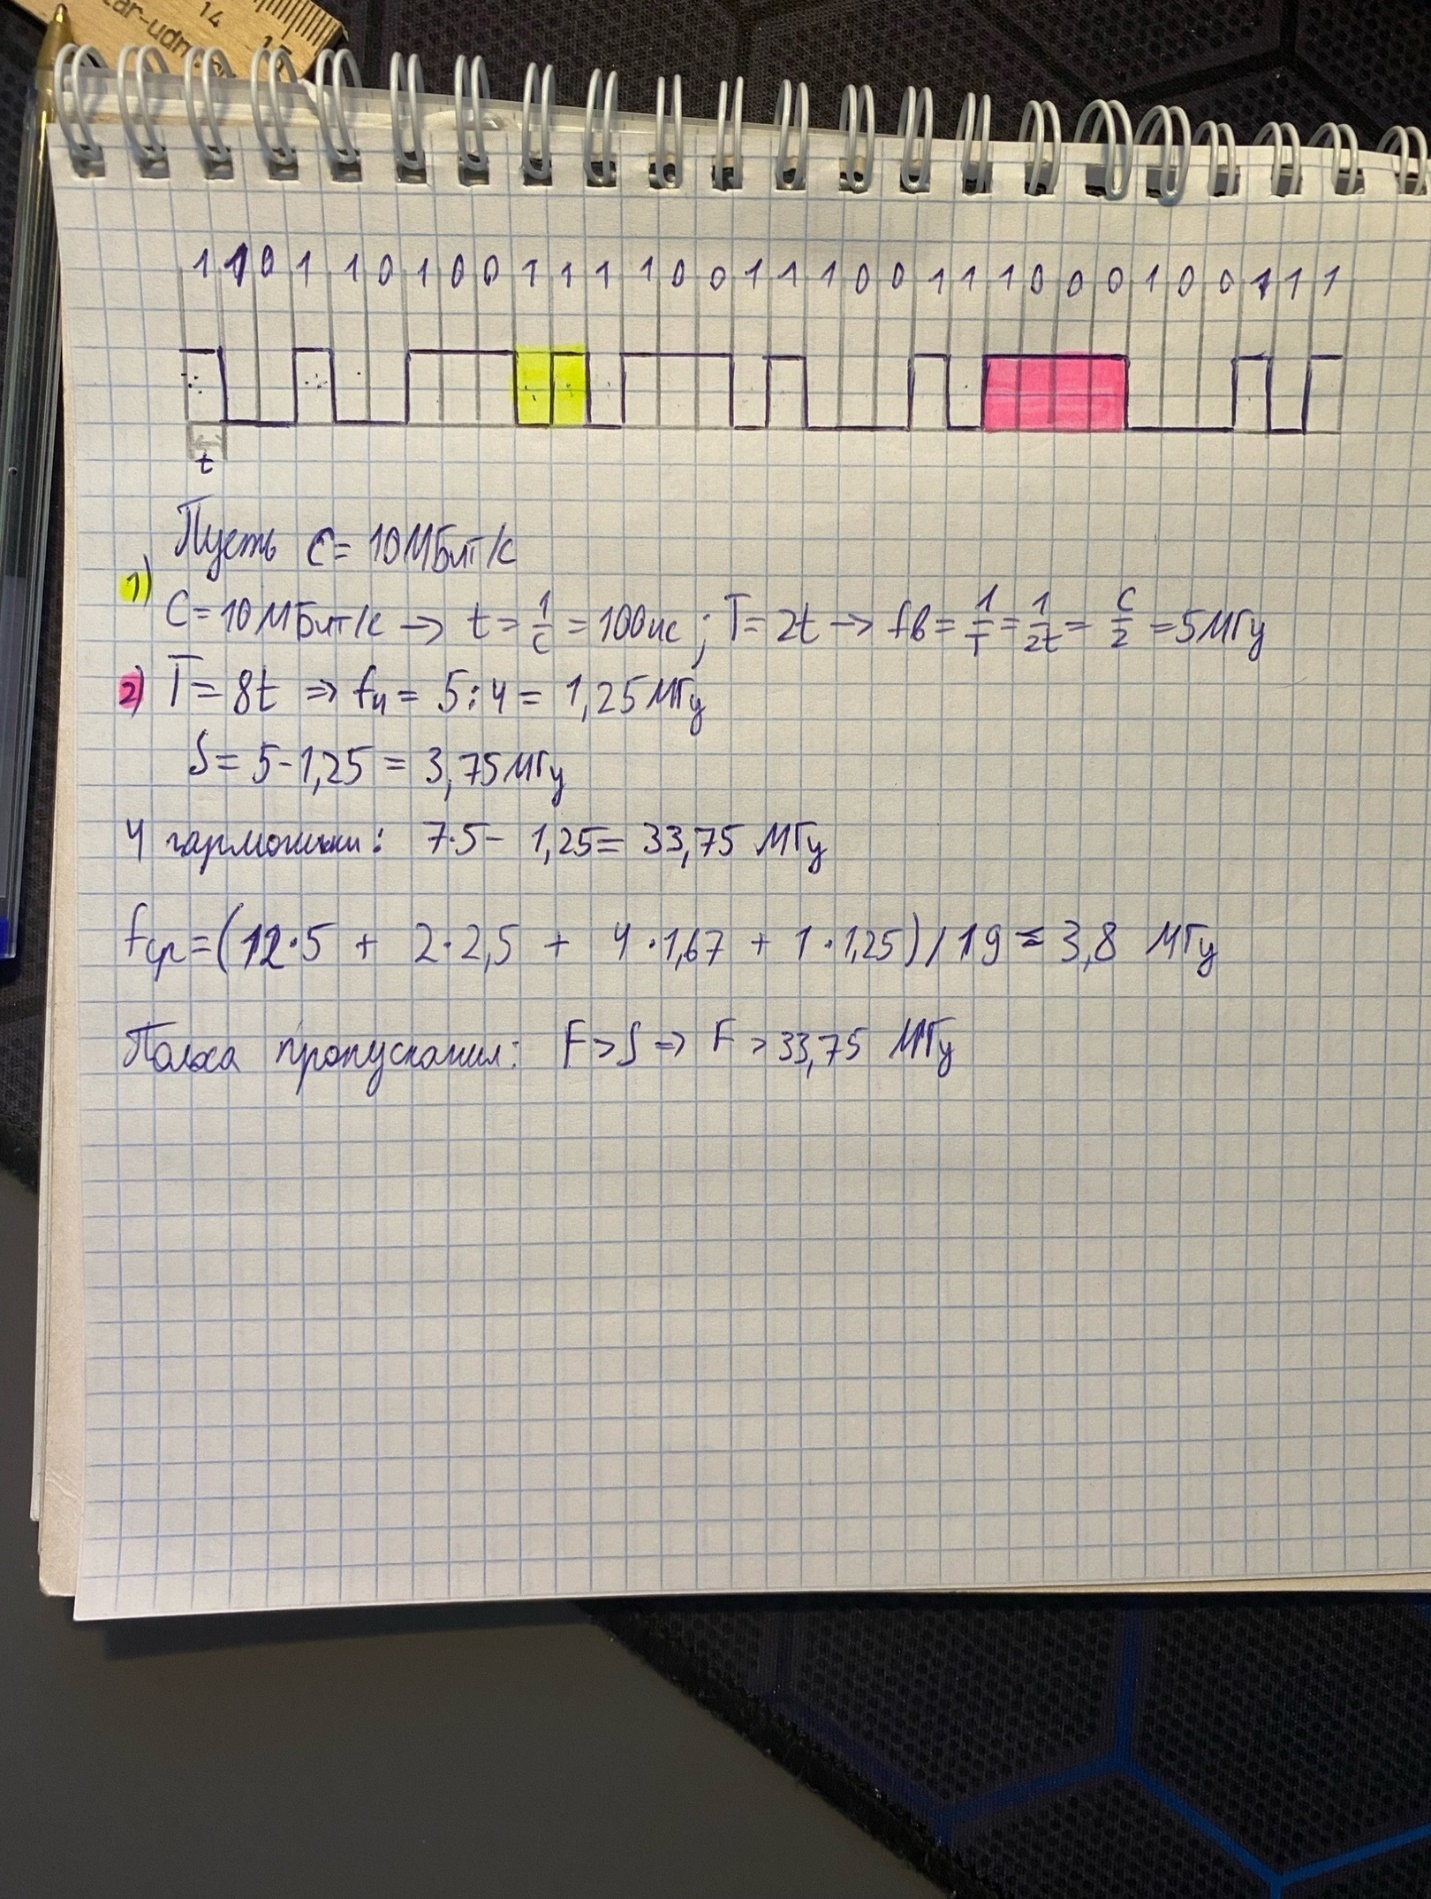 14
15
1 1 0 1 1 0 1 0 0 1 1 1 1 0 0 1 1 1 0 0 1 1 1 0 0 0 1 0 0 1 1 1
t
Пусть C = 10 МБит/с
1) C = 10 МБит/с → t = 1/C = 100 нс ; T = 2t → fв = 1/T = 1/2t = C/2 = 5 МГц
2) T = 8t ⇒ fн = 5:4 = 1,25 МГц
S = 5 - 1,25 = 3,75 МГц
4 гармоники: 7·5 - 1,25 = 33,75 МГц
fср = (12·5 + 2·2,5 + 4·1,67 + 1·1,25) / 19 ≈ 3,8 МГц
Полоса пропускания: F > S ⇒ F > 33,75 МГц